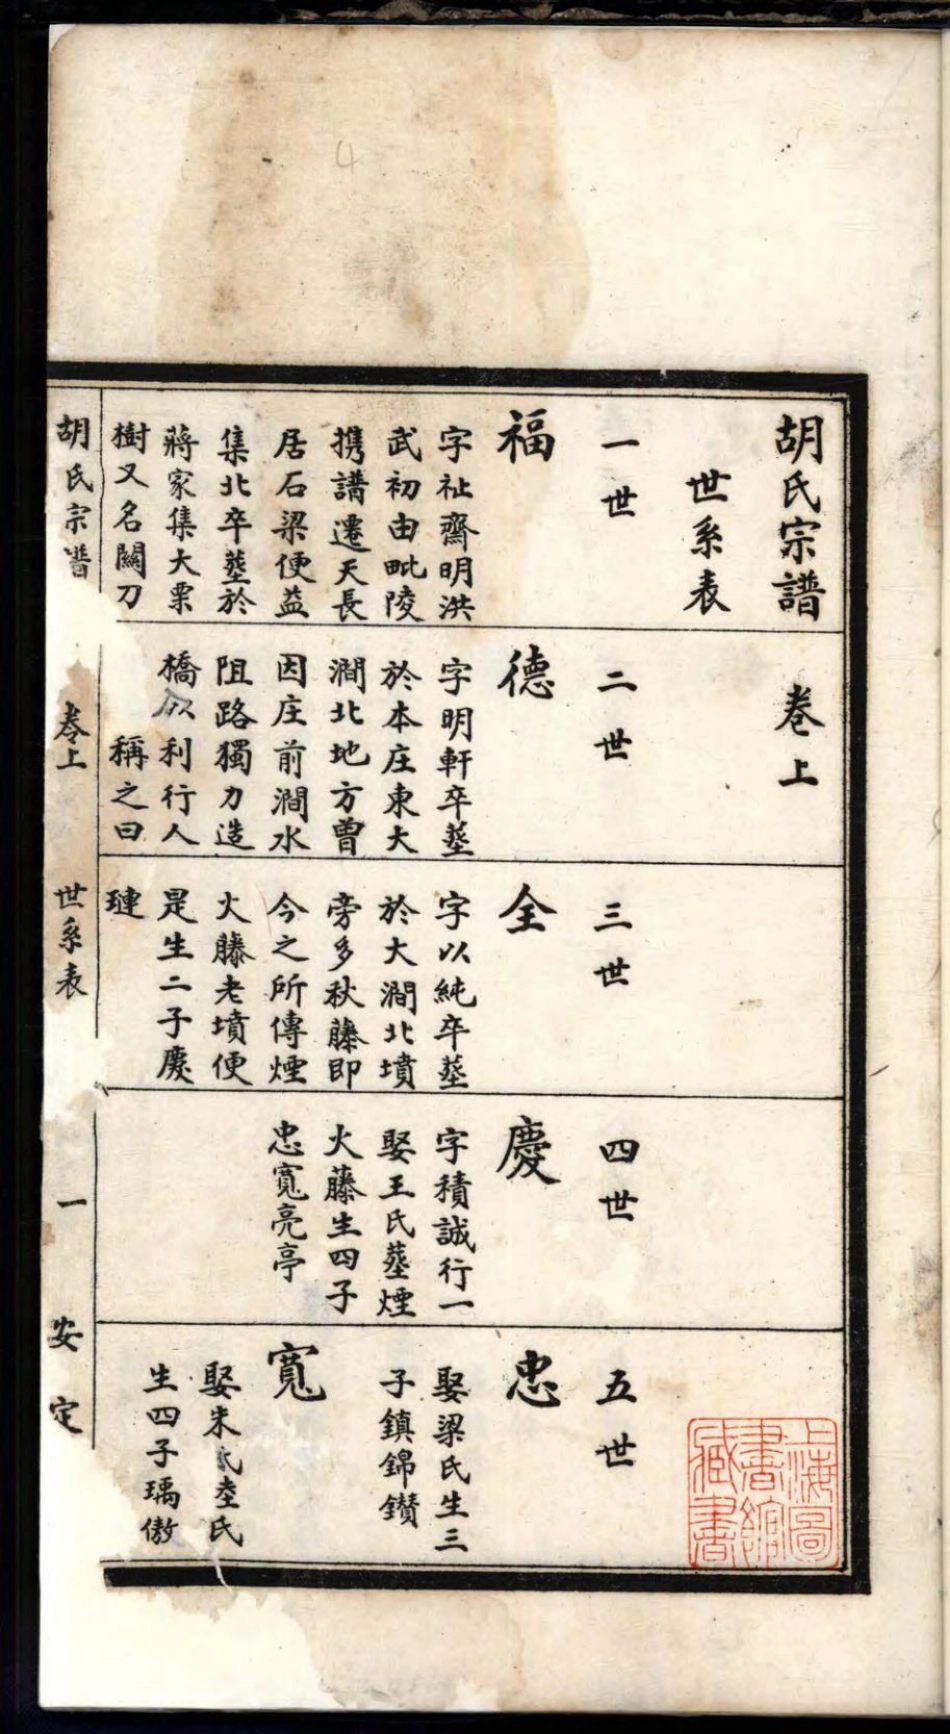 胡氏宗譜 卷上
世系表
一世
福
字祉齋明洪
武初由毗陵
携譜遷天長
居石梁便益
集北卒塟於
蔣家集大栗
樹又名關刀
二世
德
字明軒卒塟
於本庄東大
澗北地方曾
因庄前澗水
阻路獨力造
橋以利行人
稱之曰
三世
全
字以純卒塟
於大澗北墳
旁多秋藤即
今之所傳煙
火藤老墳便
是生二子慶
璉
四世
慶
字積誠行一
娶王氏塟煙
火藤生四子
忠寬亮亭
五世
忠
娶梁氏生三
子鎮錦鑽
寬
娶朱氏氏
生四子瑀傲
胡氏宗譜 卷上 世系表 一 安定
上海圖書館藏書